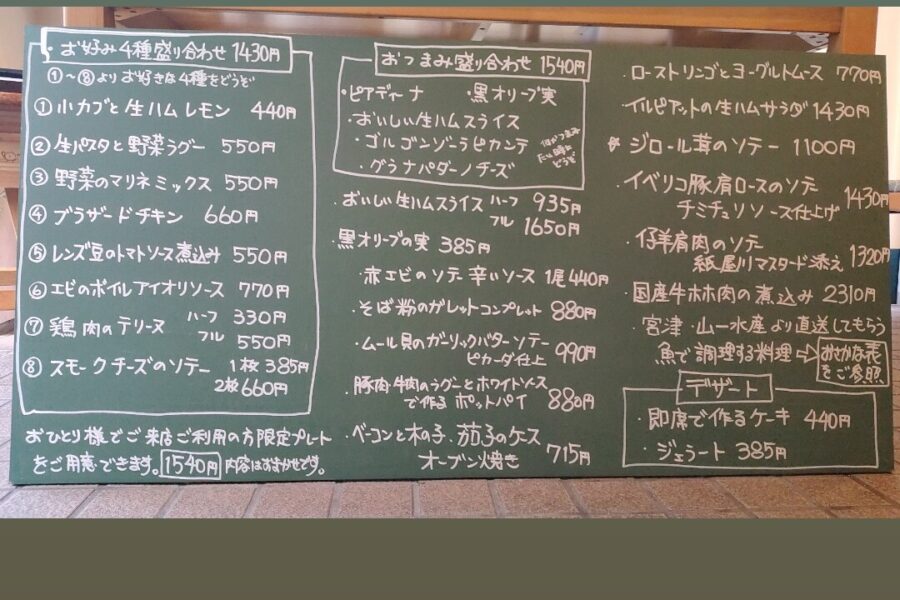 ・お好み4種盛り合わせ 1430円
①〜⑧よりお好きな4種をどうぞ
① 小カブと生ハムレモン 440円
② 生パスタと野菜ラグー 550円
③ 野菜のマリネミックス 550円
④ ブラザードチキン 660円
⑤ レンズ豆のトマトソース煮込み 550円
⑥ エビのボイルアイオリソース 770円
⑦ 鶏肉のテリーヌ ハーフ 330円
フル 550円
⑧ スモークチーズのソテー 1枚 385円
2枚 660円
おひとり様でご来店ご利用の方限定プレート
をご用意できます。1540円 内容はおまかせです。
おつまみ盛り合わせ 1540円
・ピアディーナ ・黒オリーブ実
・おいしい生ハムスライス
・ゴルゴンゾーラピカンテ
・グラナパダーノチーズ
何かつまみ
たい時に
どうぞ
・おいしい生ハムスライス ハーフ 935円
フル 1650円
・黒オリーブの実 385円
・赤エビのソテー 辛いソース 1尾440円
・そば粉のガレットコンプレット 880円
・ムール貝のガーリックバターソテー
ピカーダ仕上 990円
・豚肉牛肉のラグーとホワイトソース
で作る ポットパイ 880円
・ベーコンと木の子、茄子のケース
オーブン焼き 715円
・ローストリンゴとヨーグルトムース 770円
イルピアットの生ハムサラダ 1430円
ジロール茸のソテー 1100円
・イベリコ豚肩ロースのソテー
チミチュリソース仕上げ 1430円
・仔羊肩肉のソテー
紙屋川マスタード添え 1320円
・国産牛ホホ肉の煮込み 2310円
・宮津・山一水産より直送してもらう
魚で調理する料理⇨ おさかな表
をご参照
デザート
・即席で作るケーキ 440円
・ジェラート 385円